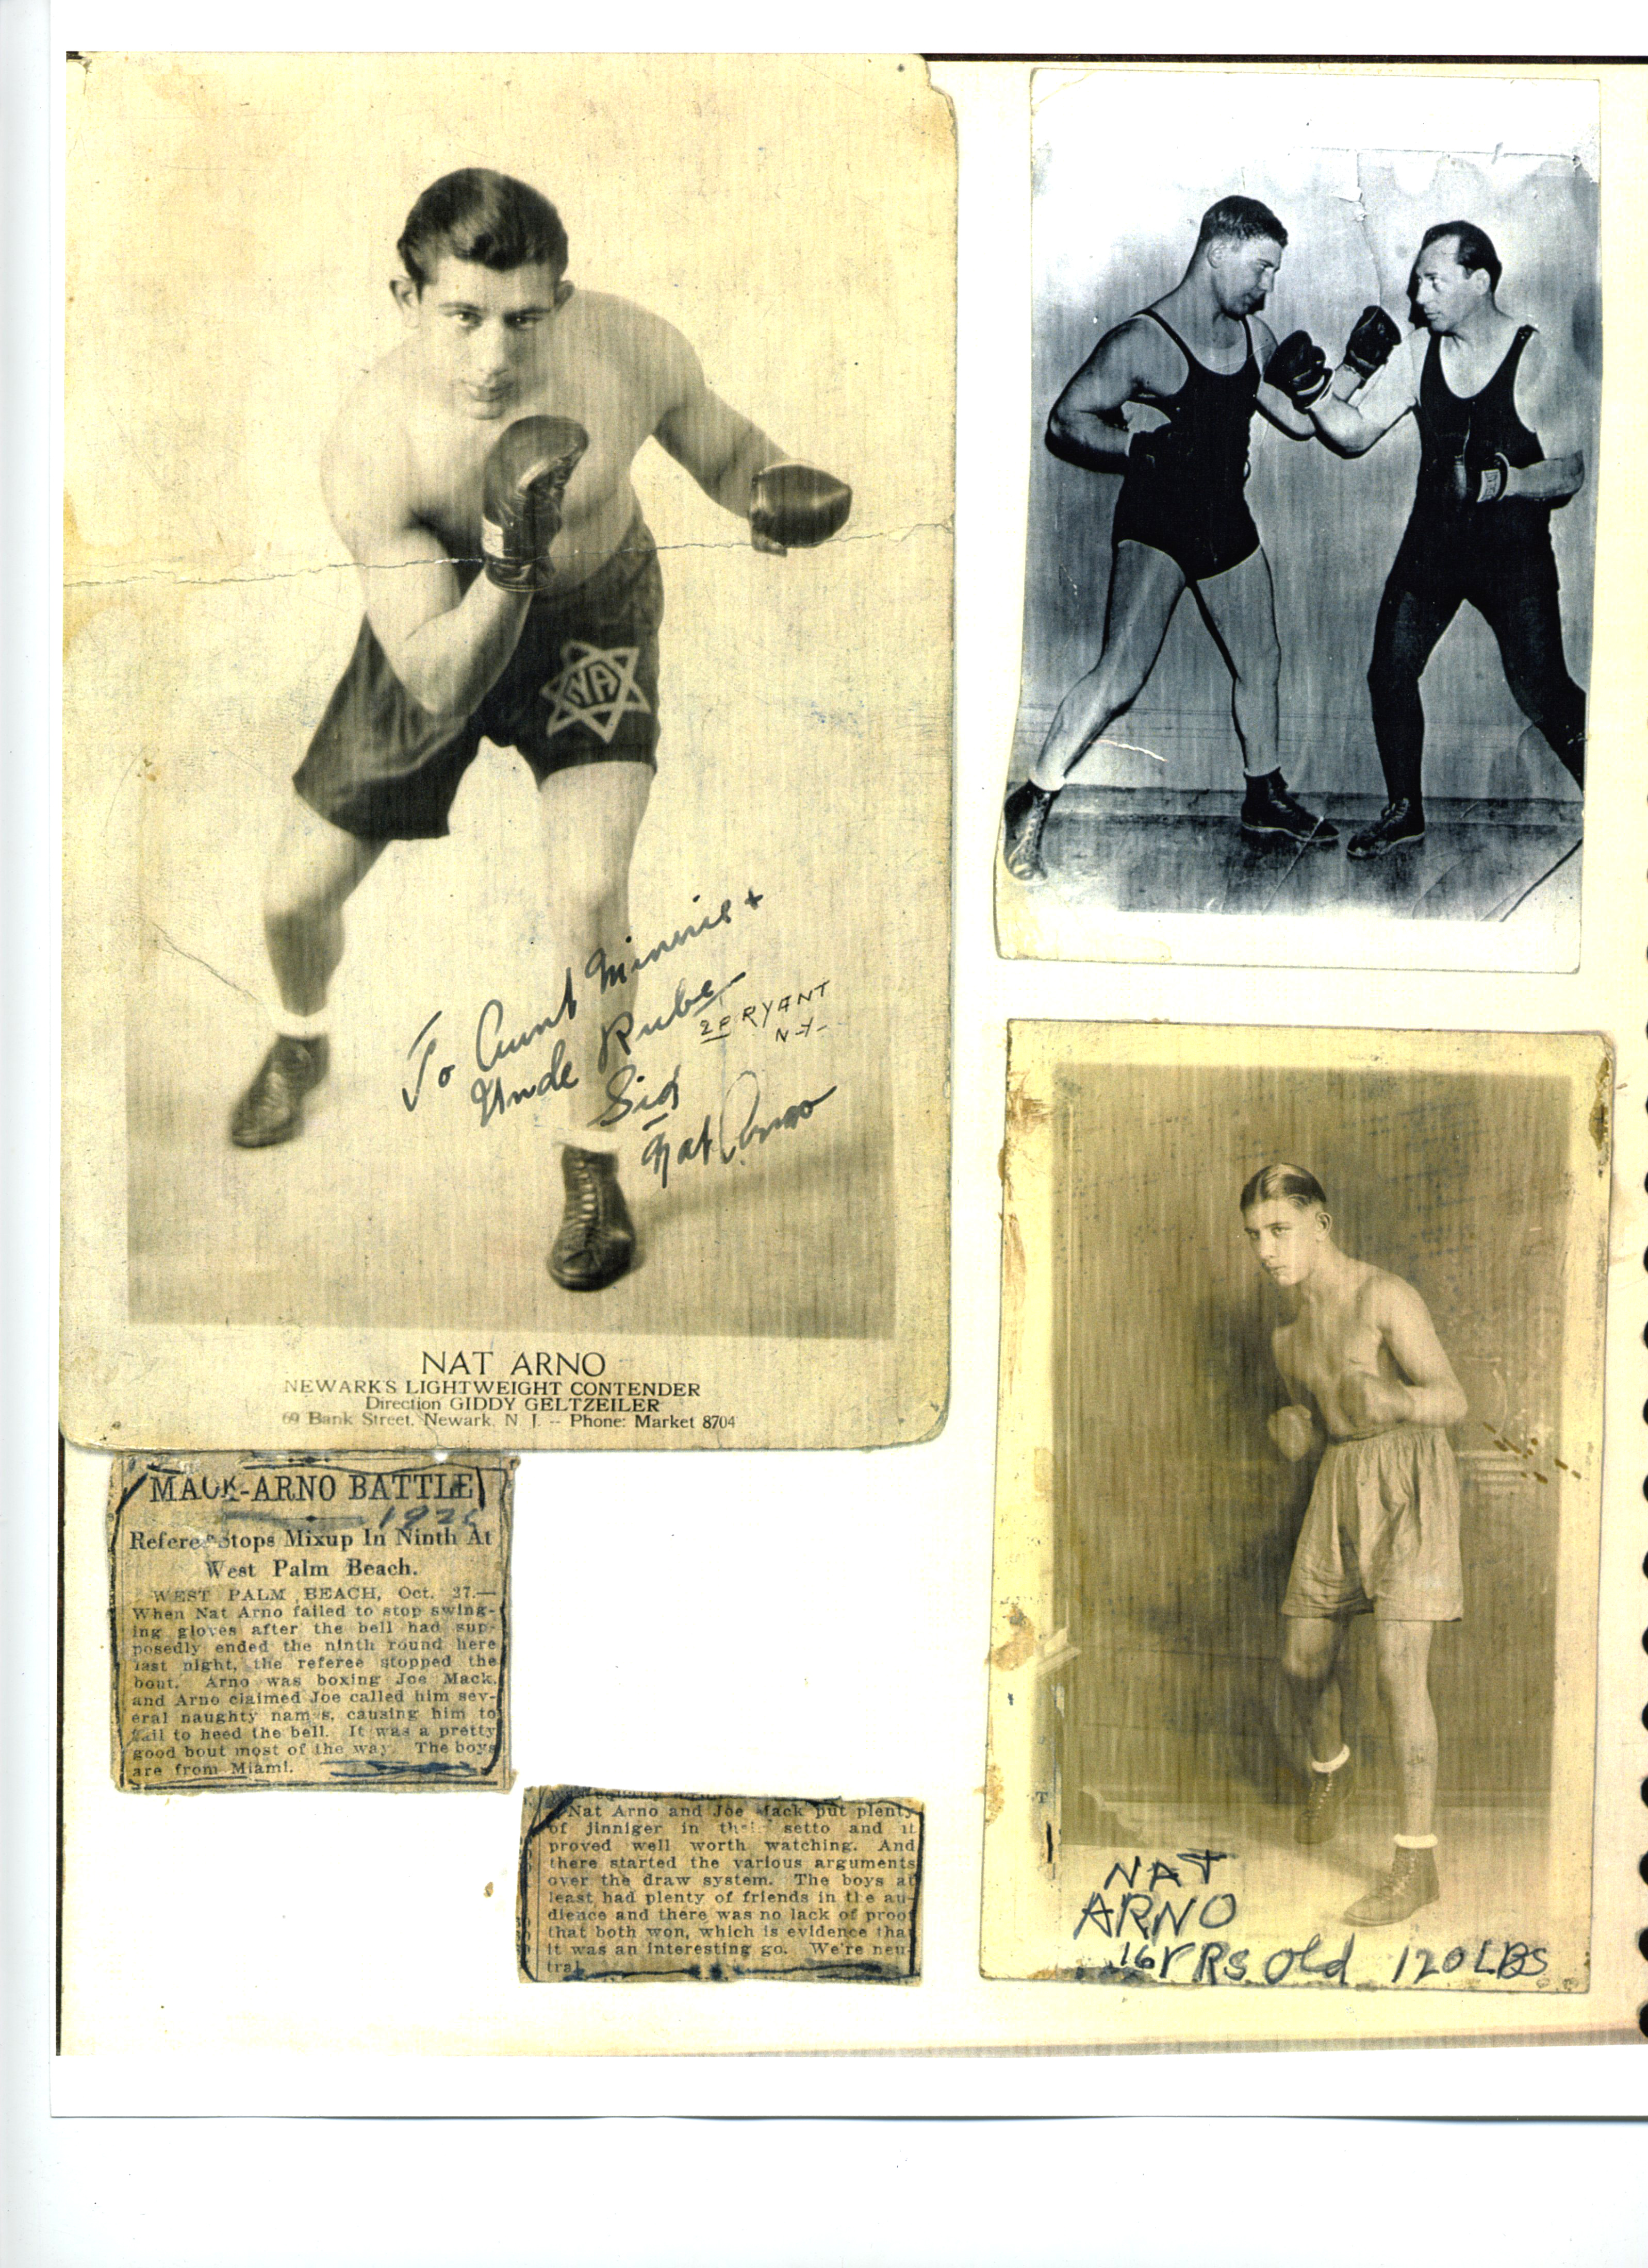 NA
To Aunt Minnie +
Uncle Rube
Sid
Nat Arno
N-Y-
NAT ARNO
NEWARK'S LIGHTWEIGHT CONTENDER
Direction GIDDY GELTZEILER
69 Bank Street, Newark, N. J. -- Phone: Market 8704
MACK-ARNO BATTLE
Referee Stops Mixup In Ninth At
West Palm Beach.
WEST PALM BEACH, Oct. 27.—
When Nat Arno failed to stop swing-
ing gloves after the bell had sup-
posedly ended the ninth round here
last night, the referee stopped the
bout. Arno was boxing Joe Mack,
and Arno claimed Joe called him sev-
eral naughty names, causing him to
fail to heed the bell. It was a pretty
good bout most of the way. The boys
are from Miami.
Nat Arno and Joe Mack put plenty
of jinniger in their setto and it
proved well worth watching. And
there started the various arguments
over the draw system. The boys at
least had plenty of friends in the au-
dience and there was no lack of proof
that both won, which is evidence that
it was an interesting go. We're neu-
tral.
NAT
ARNO
16 YRS Old 120 LBS